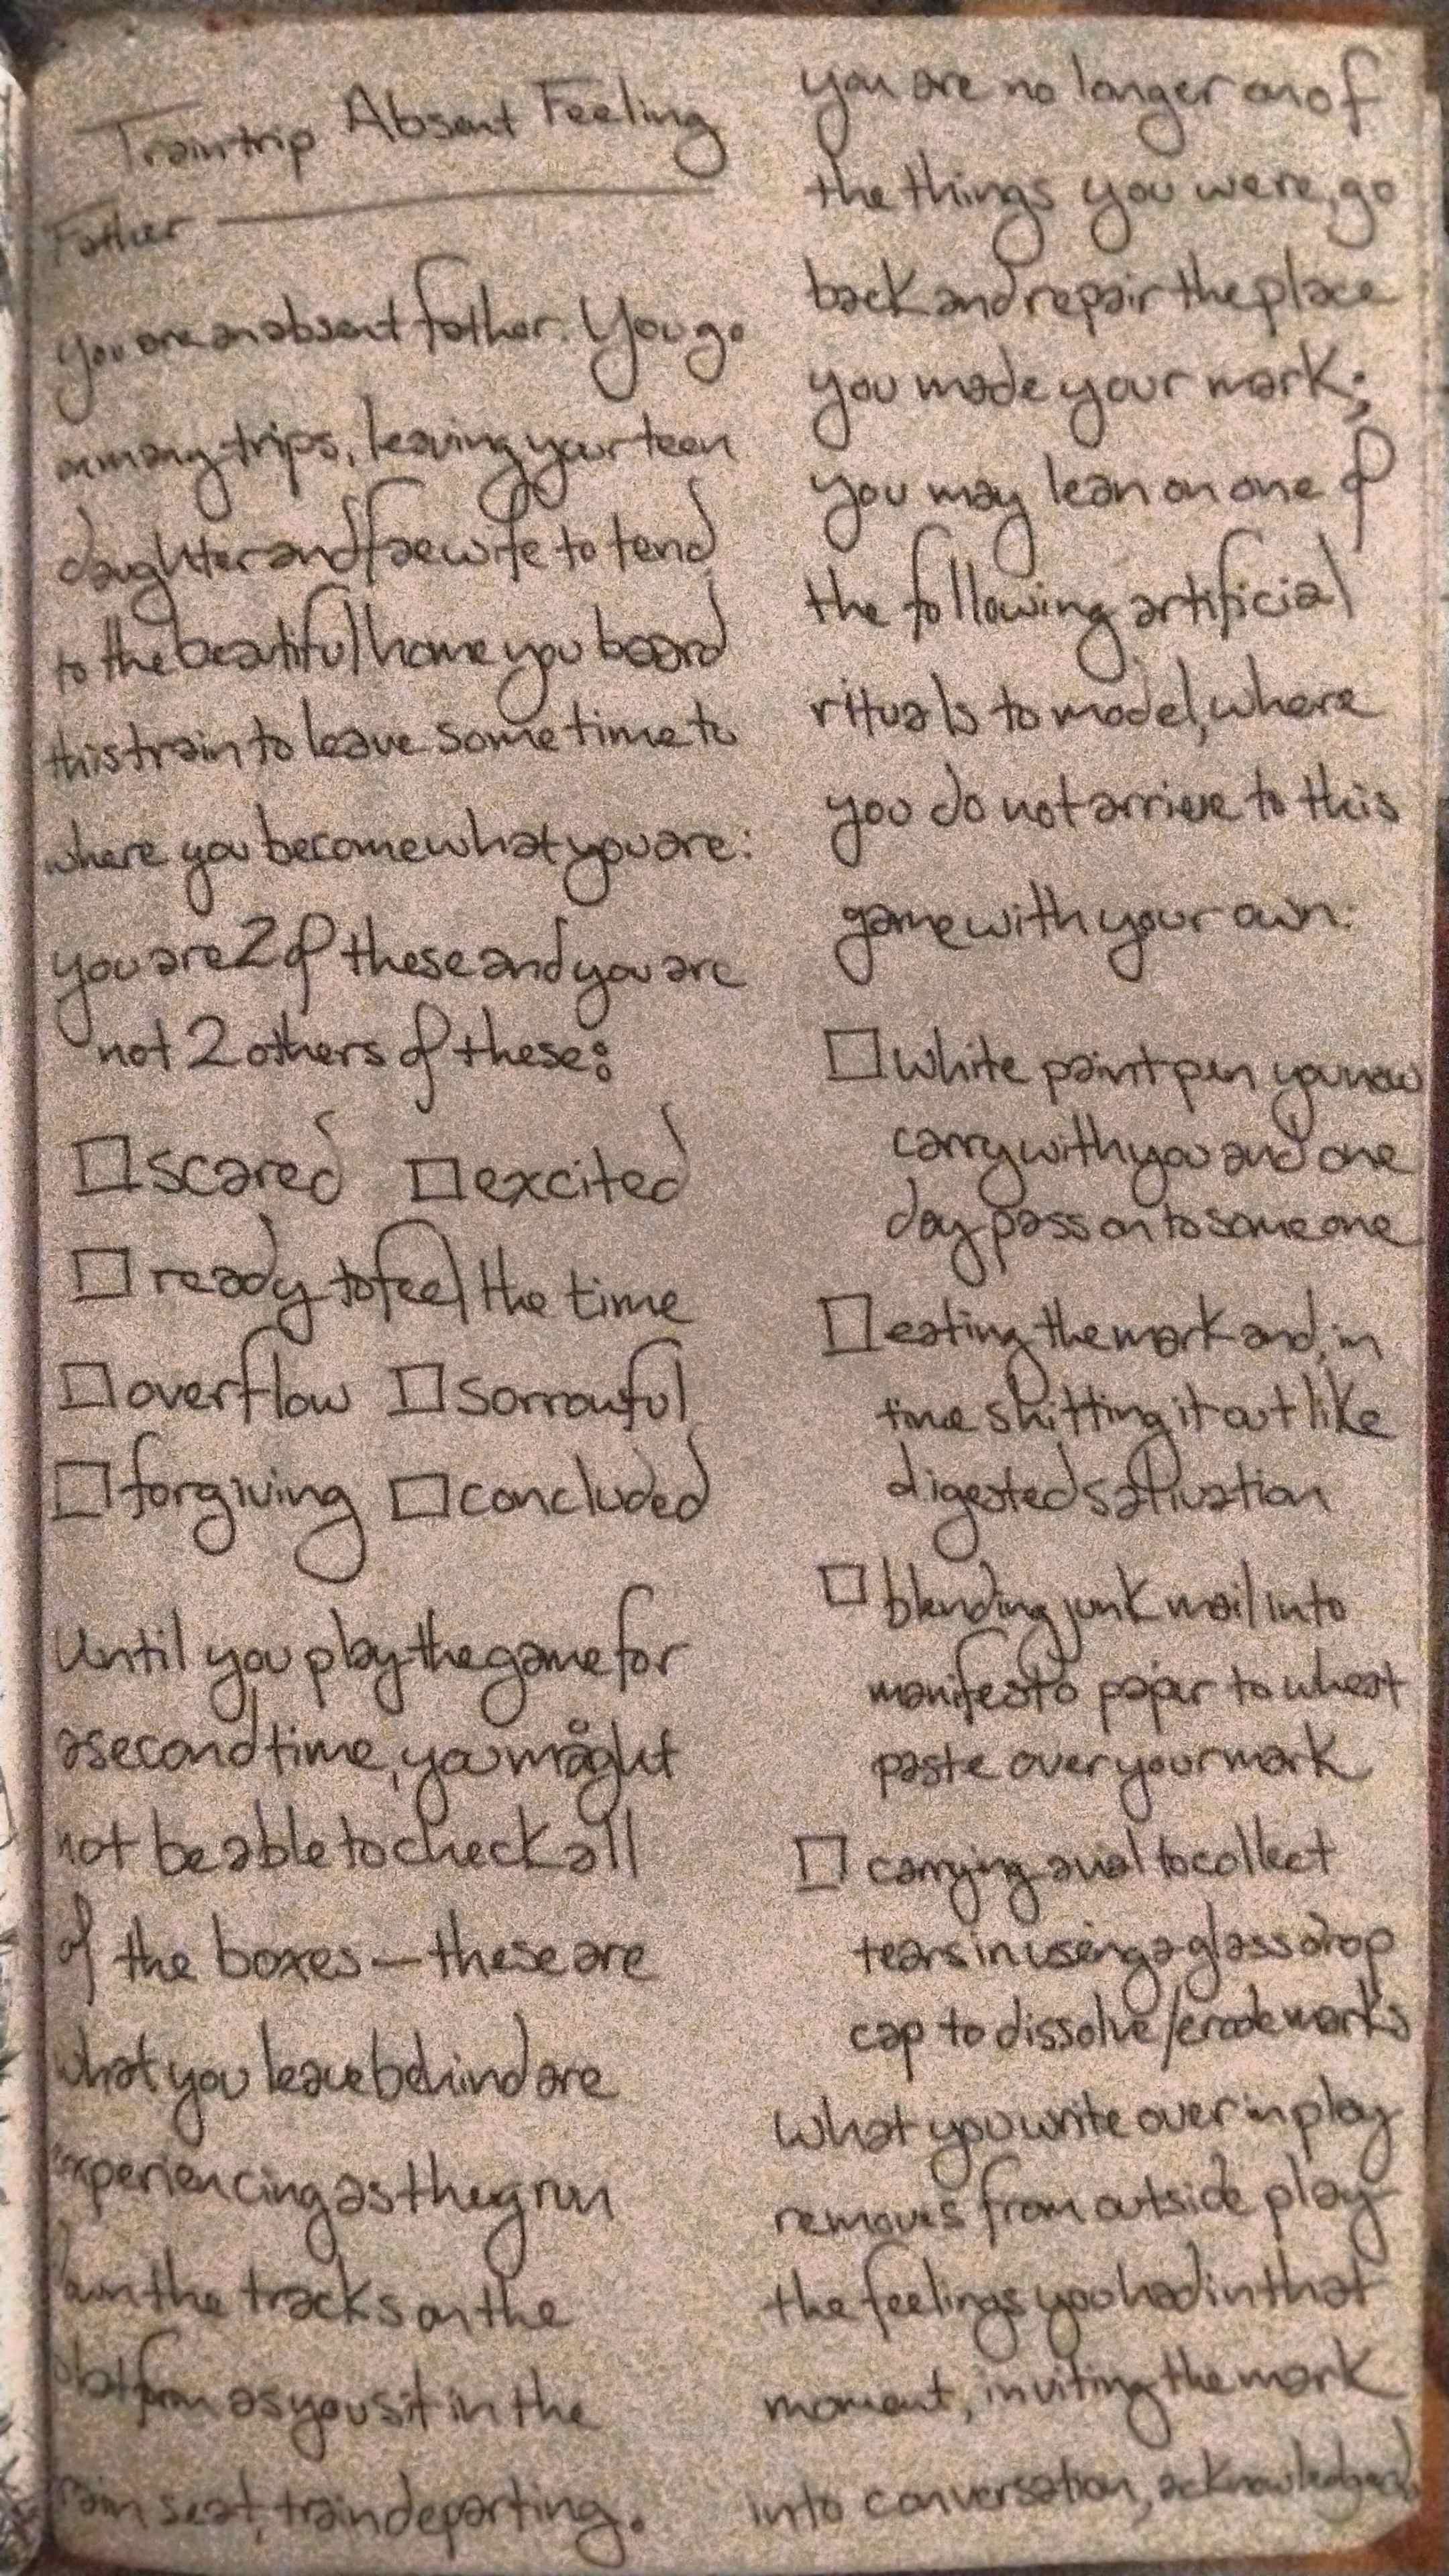 Traintrip Absent Feeling
Father
you are an absent father. You go
on many trips, leaving your teen
daughter and fae wife to tend
to the beautiful home you board
this train to leave some time to
where you become what you are:
you are 2 of these and you are
not 2 others of these:
□ scared □ excited
□ ready to feel the time
□ overflow □ sorrowful
□ forgiving □ concluded
Until you play the game for
a second time, you might
not be able to check all
of the boxes — these are
what you leave behind are
experiencing as they run
down the tracks on the
platform as you sit in the
train seat, train departing.
you are no longer on of
the things you were, go
back and repair the place
you made your mark;
you may lean on one of
the following artificial
rituals to model, where
you do not arrive to this
game with your own:
□ white paint pen you now
carry with you and one
day pass on to someone
□ eating the mark and, in
time shitting it out like
digested
□ blending junk mail into
manifesto paper to wheat
paste over your mark
□ carrying a vial to collect
tears in using a glass drop
cap to dissolve/erode marks
what you write over in play
removes from outside play
the feelings you had in that
moment, inviting the mark
into conversation,